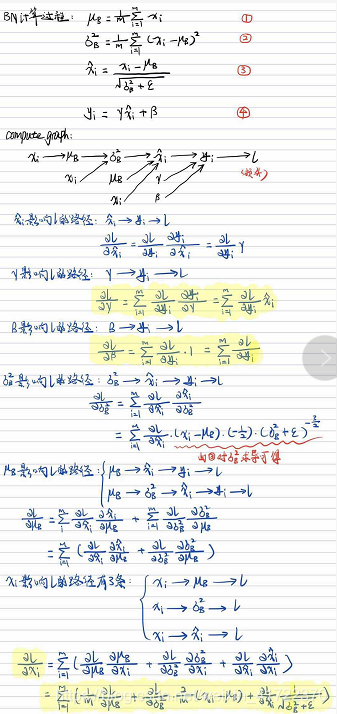 BN计算过程: μ_B = 1/m Σ_{i=1}^m x_i ①
δ_B² = 1/m Σ_{i=1}^m (x_i - μ_B)² ②
x̂_i = (x_i - μ_B) / √(δ_B² + ε) ③
y_i = γx̂_i + β ④
compute graph:
x_i → μ_B → δ_B² → x̂_i → y_i → L
x_i μ_B γ (损失)
x_i β
x̂_i影响L的路径: x̂_i → y_i → L
∂L/∂x̂_i = ∂L/∂y_i ∂y_i/∂x̂_i = ∂L/∂y_i γ
γ影响L的路径: γ → y_i → L
∂L/∂γ = Σ_{i=1}^m ∂L/∂y_i ∂y_i/∂γ = Σ_{i=1}^m ∂L/∂y_i x̂_i
β影响L的路径: β → y_i → L
∂L/∂β = Σ_{i=1}^m ∂L/∂y_i · 1 = Σ_{i=1}^m ∂L/∂y_i
δ_B²影响L的路径: δ_B² → x̂_i → y_i → L
∂L/∂δ_B² = Σ_{i=1}^m ∂L/∂x̂_i ∂x̂_i/∂δ_B²
= Σ_{i=1}^m ∂L/∂x̂_i · (x_i - μ_B) · (-1/2) · (δ_B² + ε)^{-3/2}
由③对δ_B²求导可得
μ_B影响L的路径: { μ_B → x̂_i → y_i → L
μ_B → δ_B² → x̂_i → y_i → L
∂L/∂μ_B = Σ_i^m ∂L/∂x̂_i ∂x̂_i/∂μ_B + Σ_{i=1}^m ∂L/∂δ_B² ∂δ_B²/∂μ_B
= Σ_{i=1}^m (∂L/∂x̂_i ∂x̂_i/∂μ_B + ∂L/∂δ_B² ∂δ_B²/∂μ_B)
x_i影响L的路径有3条: { x_i → μ_B → L
x_i → δ_B² → L
x_i → x̂_i → L
∂L/∂x_i = Σ_{i=1}^m (∂L/∂μ_B ∂μ_B/∂x_i + ∂L/∂δ_B² ∂δ_B²/∂x_i + ∂L/∂x̂_i ∂x̂_i/∂x_i)
= Σ_{i=1}^m (1/m ∂L/∂μ_B + ∂L/∂δ_B² 2/m (x_i - μ_B) + ∂L/∂x̂_i 1/√(δ_B² + ε))